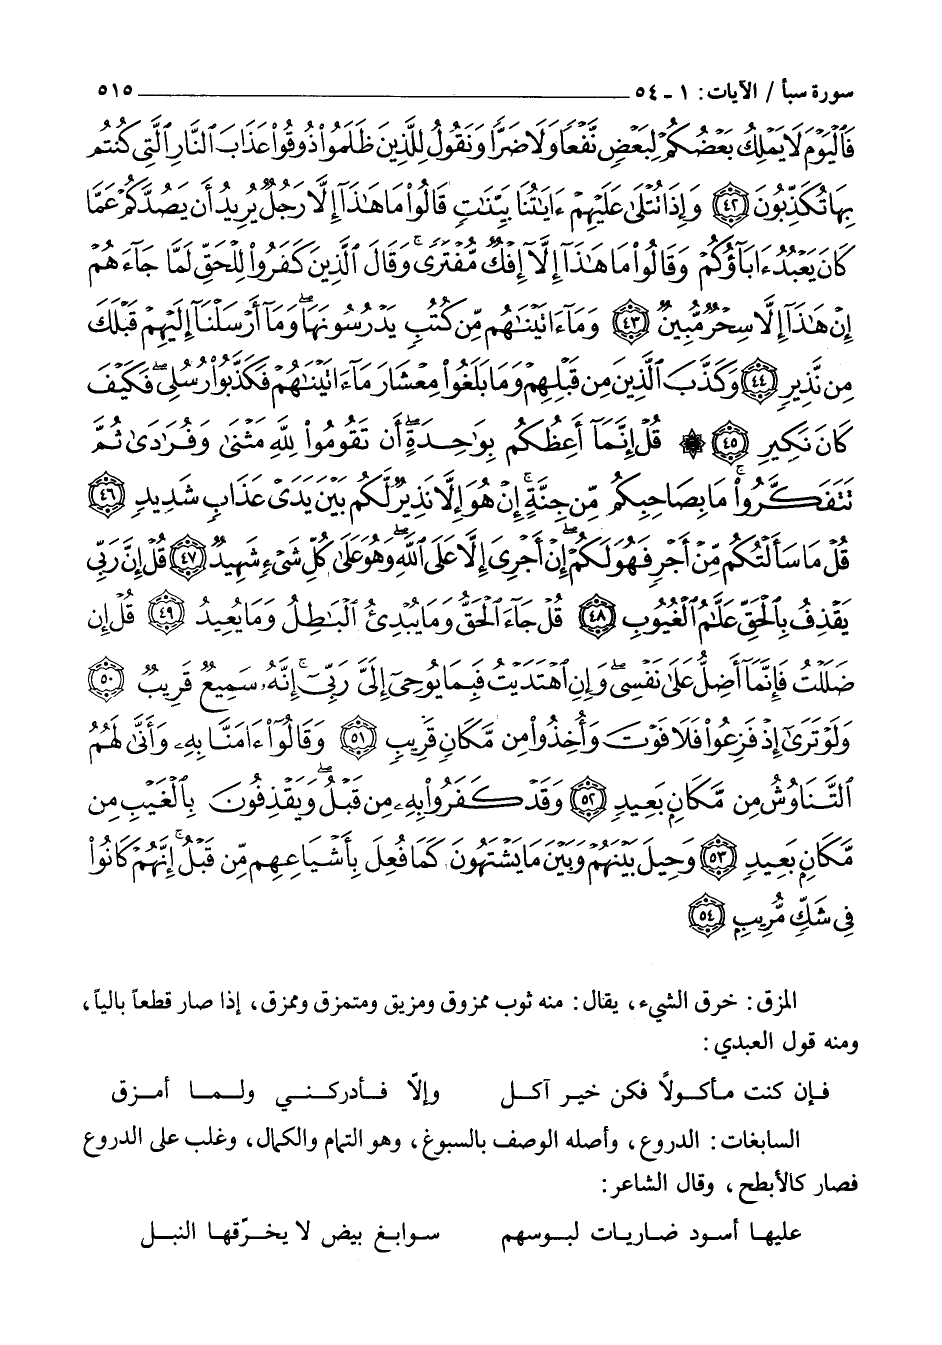 سورة سبأ / الآيات: ١ - ٥٤ ٥١٥
فَٱلْيَوْمَ لَا يَمْلِكُ بَعْضُكُمْ لِبَعْضٍ نَّفْعًا وَلَا ضَرًّا وَنَقُولُ لِلَّذِينَ ظَلَمُوا۟ ذُوقُوا۟ عَذَابَ ٱلنَّارِ ٱلَّتِى كُنتُم
بِهَا تُكَذِّبُونَ ﴿٤٢﴾ وَإِذَا تُتْلَىٰ عَلَيْهِمْ ءَايَٰتُنَا بَيِّنَٰتٍ قَالُوا۟ مَا هَٰذَآ إِلَّا رَجُلٌ يُرِيدُ أَن يَصُدَّكُمْ عَمَّا
كَانَ يَعْبُدُ ءَابَآؤُكُمْ وَقَالُوا۟ مَا هَٰذَآ إِلَّآ إِفْكٌ مُّفْتَرًى ۚ وَقَالَ ٱلَّذِينَ كَفَرُوا۟ لِلْحَقِّ لَمَّا جَآءَهُمْ
إِنْ هَٰذَآ إِلَّا سِحْرٌ مُّبِينٌ ﴿٤٣﴾ وَمَآ ءَاتَيْنَٰهُم مِّن كُتُبٍ يَدْرُسُونَهَا ۖ وَمَآ أَرْسَلْنَآ إِلَيْهِمْ قَبْلَكَ
مِن نَّذِيرٍ ﴿٤٤﴾ وَكَذَّبَ ٱلَّذِينَ مِن قَبْلِهِمْ وَمَا بَلَغُوا۟ مِعْشَارَ مَآ ءَاتَيْنَٰهُمْ فَكَذَّبُوا۟ رُسُلِى ۖ فَكَيْفَ
كَانَ نَكِيرِ ﴿٤٥﴾ ۞ قُلْ إِنَّمَآ أَعِظُكُم بِوَٰحِدَةٍ ۖ أَن تَقُومُوا۟ لِلَّهِ مَثْنَىٰ وَفُرَٰدَىٰ ثُمَّ
تَتَفَكَّرُوا۟ ۚ مَا بِصَاحِبِكُم مِّن جِنَّةٍ ۚ إِنْ هُوَ إِلَّا نَذِيرٌ لَّكُم بَيْنَ يَدَىْ عَذَابٍ شَدِيدٍ ﴿٤٦﴾
قُلْ مَا سَأَلْتُكُم مِّنْ أَجْرٍ فَهُوَ لَكُمْ ۖ إِنْ أَجْرِىَ إِلَّا عَلَى ٱللَّهِ ۖ وَهُوَ عَلَىٰ كُلِّ شَىْءٍ شَهِيدٌ ﴿٤٧﴾ قُلْ إِنَّ رَبِّى
يَقْذِفُ بِٱلْحَقِّ عَلَّٰمُ ٱلْغُيُوبِ ﴿٤٨﴾ قُلْ جَآءَ ٱلْحَقُّ وَمَا يُبْدِئُ ٱلْبَٰطِلُ وَمَا يُعِيدُ ﴿٤٩﴾ قُلْ إِن
ضَلَلْتُ فَإِنَّمَآ أَضِلُّ عَلَىٰ نَفْسِى ۖ وَإِنِ ٱهْتَدَيْتُ فَبِمَا يُوحِىٓ إِلَىَّ رَبِّىٓ ۚ إِنَّهُۥ سَمِيعٌ قَرِيبٌ ﴿٥٠﴾
وَلَوْ تَرَىٰٓ إِذْ فَزِعُوا۟ فَلَا فَوْتَ وَأُخِذُوا۟ مِن مَّكَانٍ قَرِيبٍ ﴿٥١﴾ وَقَالُوٓا۟ ءَامَنَّا بِهِۦ وَأَنَّىٰ لَهُمُ
ٱلتَّنَاوُشُ مِن مَّكَانٍۭ بَعِيدٍ ﴿٥٢﴾ وَقَدْ كَفَرُوا۟ بِهِۦ مِن قَبْلُ ۖ وَيَقْذِفُونَ بِٱلْغَيْبِ مِن
مَّكَانٍۭ بَعِيدٍ ﴿٥٣﴾ وَحِيلَ بَيْنَهُمْ وَبَيْنَ مَا يَشْتَهُونَ كَمَا فُعِلَ بِأَشْيَاعِهِم مِّن قَبْلُ ۚ إِنَّهُمْ كَانُوا۟
فِى شَكٍّ مُّرِيبٍۭ ﴿٥٤﴾
المزق: خرق الشيء، يقال: منه ثوب ممزوق ومزيق ومتمزق وممزق، إذا صار قطعاً بالياً،
ومنه قول العبدي:
فإن كنت مأكولاً فكن خير آكل وإلّا فأدركني ولما أمزق
السابغات: الدروع، وأصله الوصف بالسبوغ، وهو التمام والكمال، وغلب على الدروع
فصار كالأبطح، وقال الشاعر:
عليها أسود ضاريات لبوسهم سوابغ بيض لا يخرّقها النبل